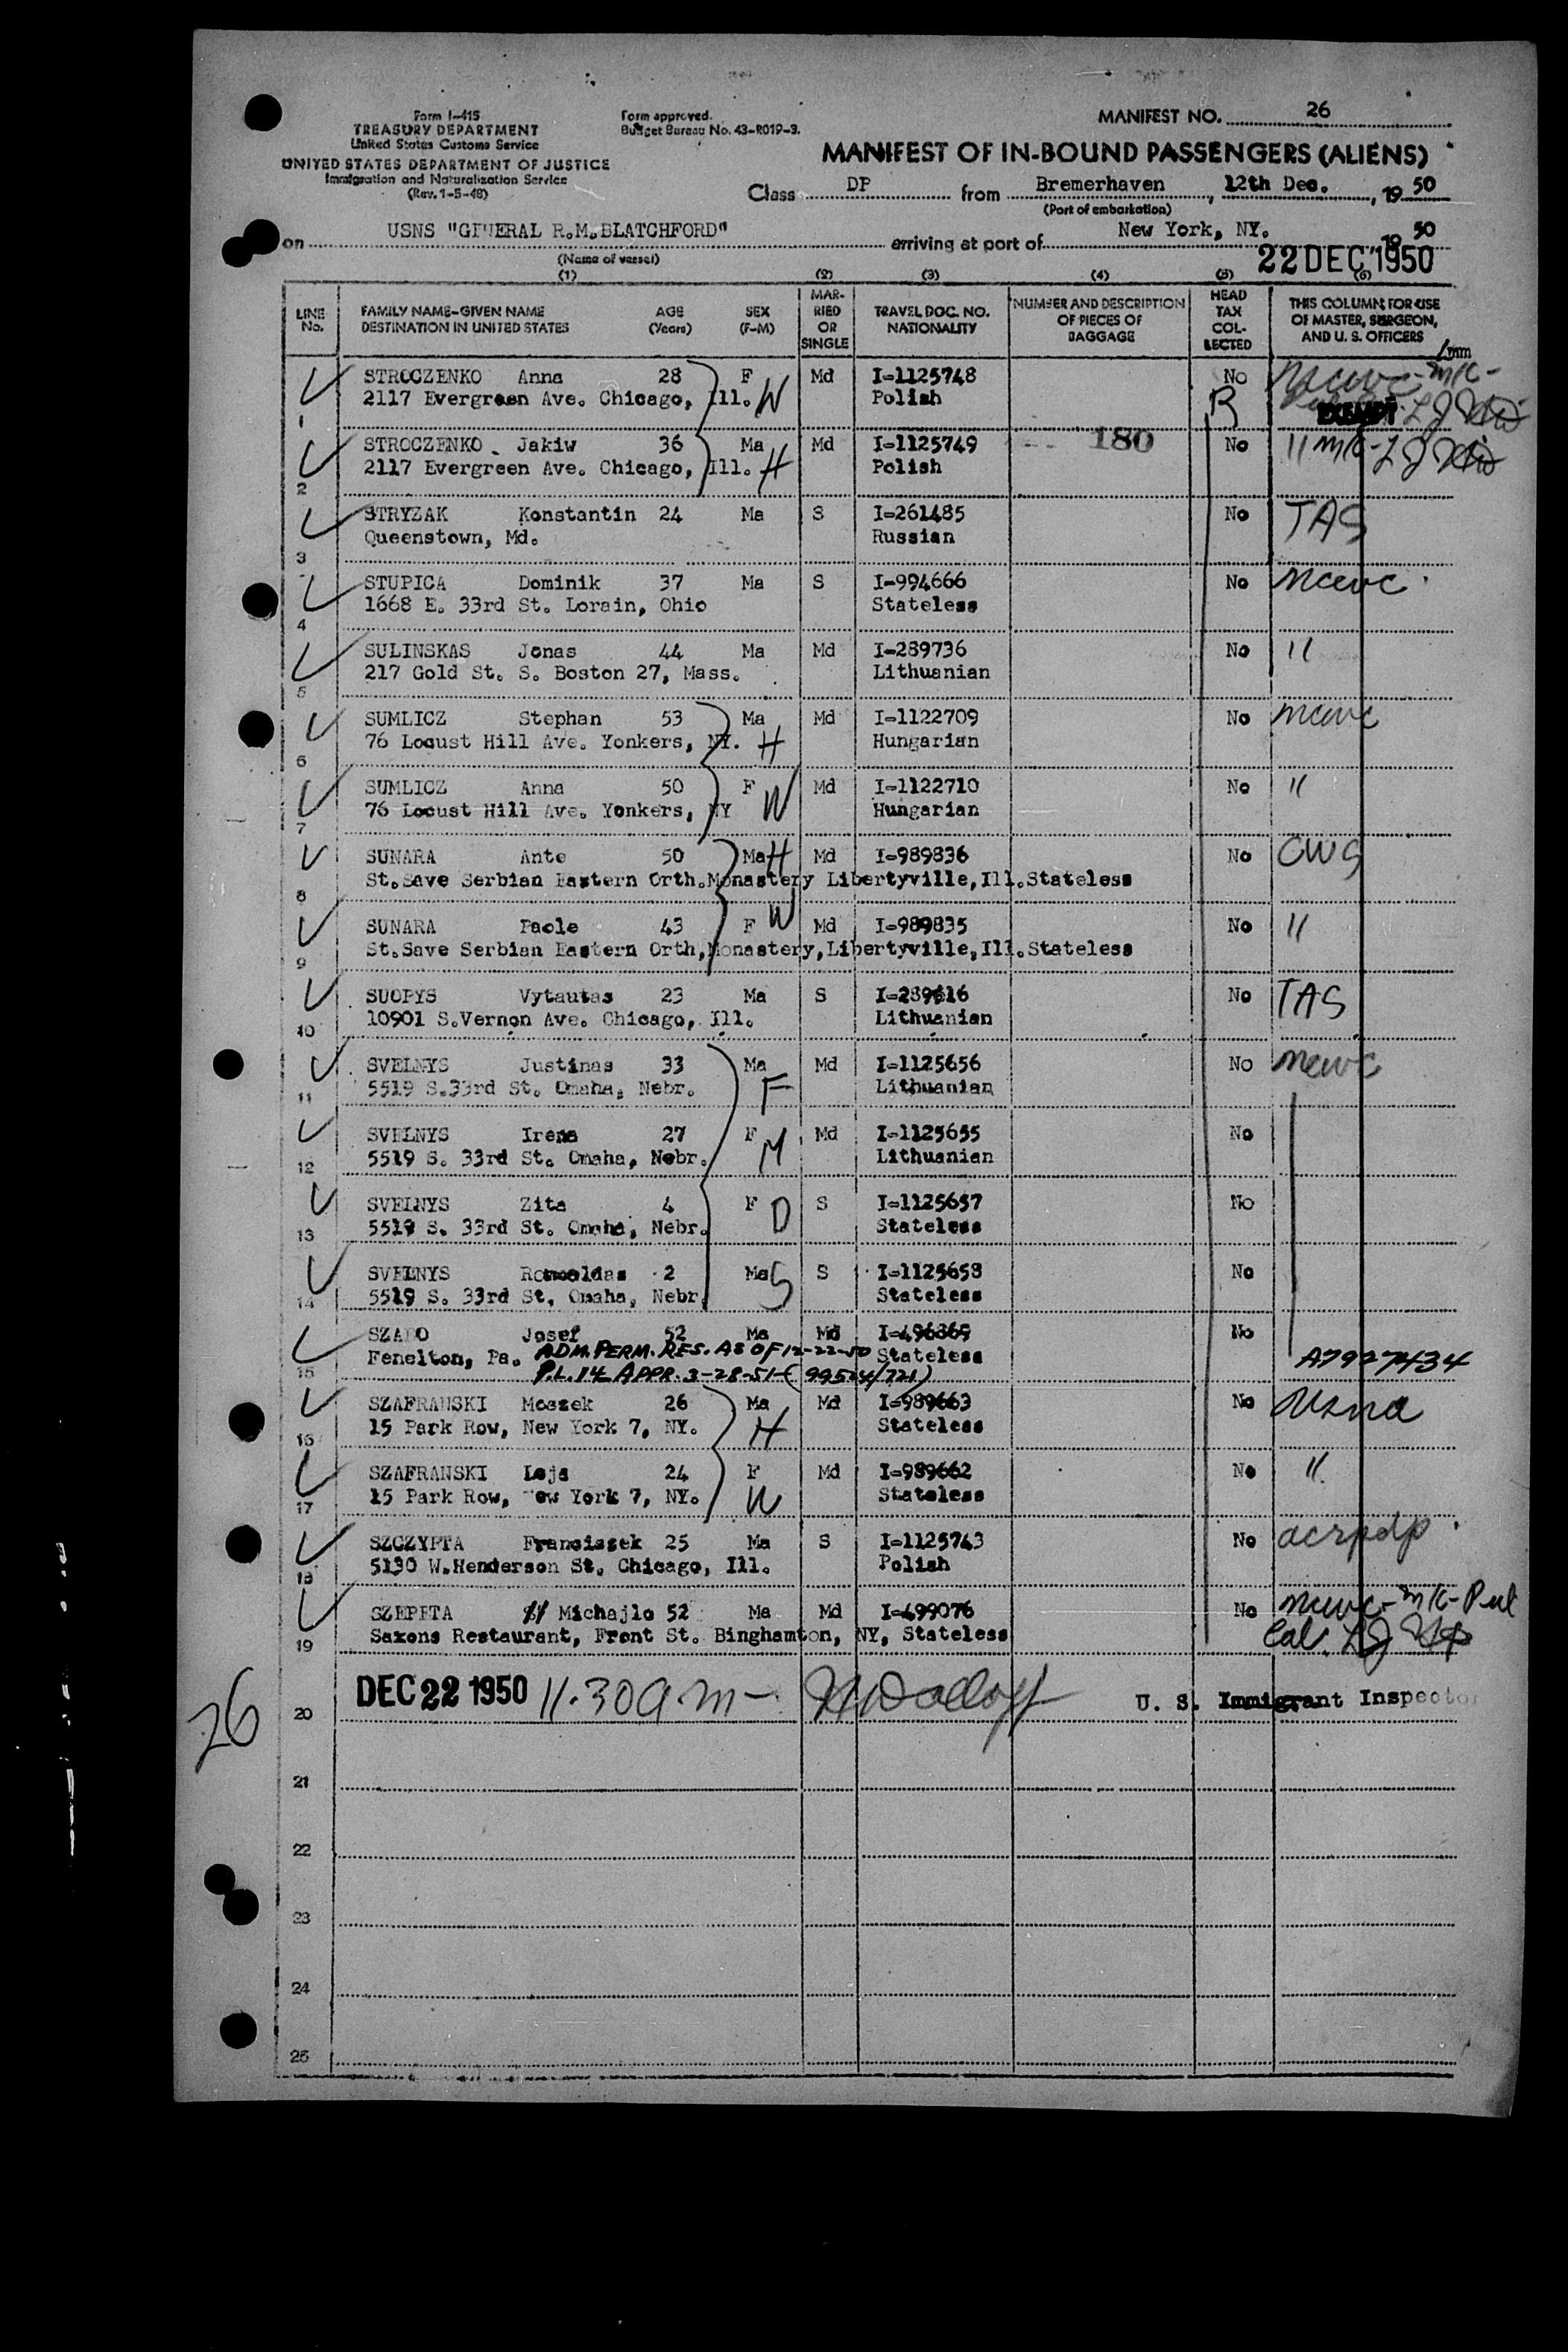 Form I-415
TREASURY DEPARTMENT
United States Customs Service
UNITED STATES DEPARTMENT OF JUSTICE
Immigration and Naturalization Service
(Rev. 1-5-48)
Form approved.
Budget Bureau No. 43-R019-3.
MANIFEST NO. 26
MANIFEST OF IN-BOUND PASSENGERS (ALIENS)
Class DP from Bremerhaven, 12th Dec., 19 50
(Port of embarkation)
on USNS "GENERAL R.M.BLATCHFORD" arriving at port of New York, NY. 19 50
(Name of vessel)
22 DEC 1950
(1) (2) (3) (4) (5) (6)
LINE No. FAMILY NAME-GIVEN NAME DESTINATION IN UNITED STATES AGE (Years) SEX (F-M) MARRIED OR SINGLE TRAVEL DOC. NO. NATIONALITY NUMBER AND DESCRIPTION OF PIECES OF BAGGAGE HEAD TAX COLLECTED THIS COLUMN FOR USE OF MASTER, SURGEON, AND U. S. OFFICERS
STROCZENKO Anna 28 F Md I-1125748 No
1 2117 Evergreen Ave. Chicago, Ill. W Polish R EXEMPT
STROCZENKO Jakiw 36 Ma Md I-1125749 180 No
2 2117 Evergreen Ave. Chicago, Ill. H Polish
STRYZAK Konstantin 24 Ma S I-261485 No TAS
3 Queenstown, Md. Russian
STUPICA Dominik 37 Ma S I-994666 No ncwc
4 1668 E. 33rd St. Lorain, Ohio Stateless
SULINSKAS Jonas 44 Ma Md I-289736 No "
5 217 Gold St. S. Boston 27, Mass. Lithuanian
SUMLICZ Stephan 53 Ma Md I-1122709 No ncwc
6 76 Locust Hill Ave. Yonkers, NY. H Hungarian
SUMLICZ Anna 50 F W Md I-1122710 No "
7 76 Locust Hill Ave. Yonkers, NY Hungarian
SUNARA Ante 50 Ma H Md I-989836 No CWS
8 St.Save Serbian Eastern Orth.Monastery Libertyville,Ill.Stateless
SUNARA Paole 43 F W Md I-989835 No "
9 St.Save Serbian Eastern Orth,Monastery,Libertyville,Ill.Stateless
SUOPYS Vytautas 23 Ma S I-289616 No TAS
10 10901 S.Vernon Ave. Chicago, Ill. Lithuanian
SVELNYS Justinas 33 Ma Md I-1125656 No ncwc
11 5519 S.33rd St. Omaha, Nebr. F Lithuanian
SVELNYS Irena 27 F Md I-1125655 No
12 5519 S. 33rd St. Omaha, Nebr. M Lithuanian
SVELNYS Zita 4 F D S I-1125657 No
13 5519 S. 33rd St. Omaha, Nebr. Stateless
SVELNYS Romualdas 2 Ma S S I-1125658 No
14 5519 S. 33rd St, Omaha, Nebr. Stateless
SZABO Josef 52 Ma Md I-496369 No
15 Fenelton, Pa. ADM. PERM. RES. AS OF 12-22-50 Stateless A7927434
P.L. 14 APPR. 3-28-51-(99524/721)
SZAFRANSKI Moszek 26 Ma Md I-989663 No usna
16 15 Park Row, New York 7, NY. H Stateless
SZAFRANSKI Leja 24 F Md I-989662 No "
17 15 Park Row, New York 7, NY. W Stateless
SZCZYPTA Franciszek 25 Ma S I-1125743 No acrpdp
18 5130 W.Henderson St. Chicago, Ill. Polish
SZEPETA Michajlo 52 Ma Md I-499076 No ncwc
19 Saxons Restaurant, Front St. Binghamton, NY, Stateless
20 DEC 22 1950 11.30 a.m- U. S. Immigrant Inspector
26
21
22
23
24
25